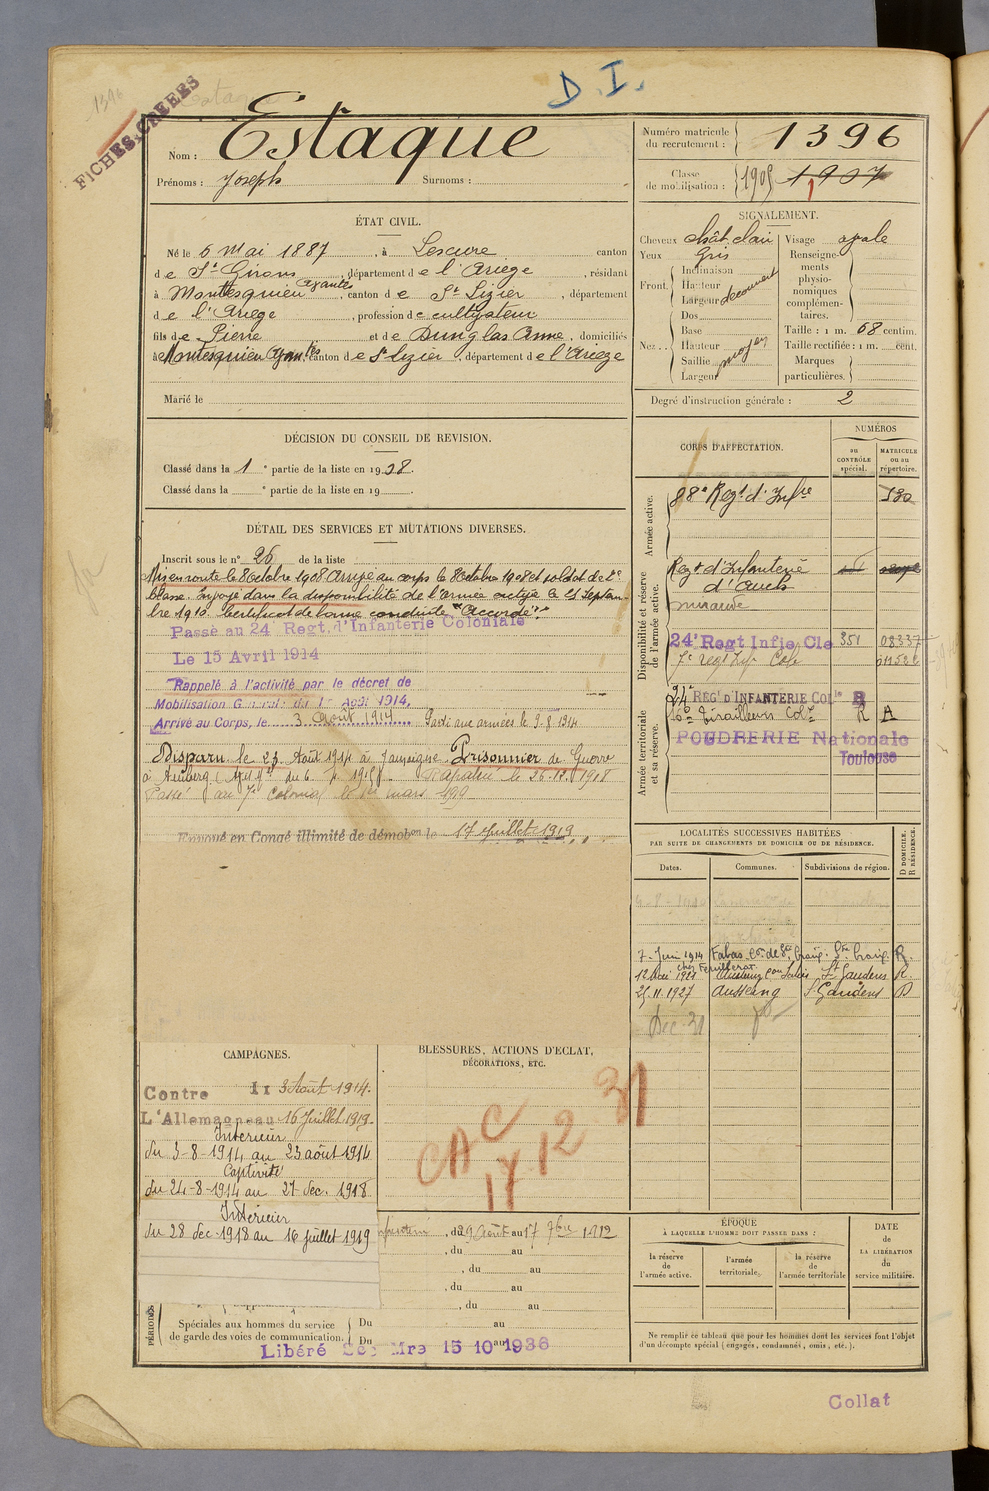 1396
FICHES CRÉÉES
Estaque
D. I.
Nom : Estaque
Prénoms : Joseph Surnoms :
Numéro matricule du recrutement : 1396
Classe de mobilisation : 1905 1907
ÉTAT CIVIL.
Né le 6 Mai 1887, à Lescure canton
de St Girons, département de l'Ariège, résidant
à Montesquieu Avantès, canton de St Lizier, département
de l'Ariège, profession de cultivateur
fils de Pierre et de Dunglas Anne, domiciliés
à Montesquieu Avantès canton de St Lizier, département de l'Ariège
Marié le
SIGNALEMENT.
Cheveux chât clair
Yeux Gris
Front. Inclinaison
Hauteur
Largeur decouvert
Nez. Dos
Base
Hauteur moyen
Saillie
Largeur
Visage ovale
Renseignements physionomiques complémentaires.
Taille : 1 m. 68 centim.
Taille rectifiée : 1 m. cent.
Marques particulières.
Degré d'instruction générale : 2
DÉCISION DU CONSEIL DE REVISION.
Classé dans la 1e partie de la liste en 1908.
Classé dans la e partie de la liste en 19
DÉTAIL DES SERVICES ET MUTATIONS DIVERSES.
Inscrit sous le n° 26 de la liste
Mis en route le 8 Octobre 1908 Arrivé au corps le 8 Octobre 1908 et soldat de 2e
classe. Envoyé dans la disponibilité de l'armée active le 25 Septem
bre 1910. Certificat de bonne conduite "Accordé".
Passé au 24 Regt. d'Infanterie Coloniale
Le 15 Avril 1914
Rappelé à l'activité par le décret de
Mobilisation Générale du 1er Août 1914,
Arrivé au Corps, le 3 Août 1914 Parti aux armées le 9.8.1914
Disparu le 23 Août 1914 à Jamoigne Prisonnier de Guerre
à Rapatrié le 26.12.1918
Passé au 7e Colonial le 1er mars 1919
Envoyé en Congé illimité de démobon le 17 Juillet 1919
CORPS D'AFFECTATION.
NUMÉROS
au CONTRÔLE spécial.
MATRICULE ou au répertoire.
Armée active.
88e Regt d'Infre
Disponibilité et réserve de l'armée active.
Regt d'Infanterie
d'Auch
24e Regt Infie Cle 351 08337
7e regt Inf Cole
Armée territoriale et sa réserve.
24e REGt D'INFANTERIE COLle R
16e Tirailleurs Colx R A
POUDRERIE Nationale
Toulouse
LOCALITÉS SUCCESSIVES HABITÉES
PAR SUITE DE CHANGEMENTS DE DOMICILE OU DE RÉSIDENCE.
Dates. Communes. Subdivisions de région.
D DOMICILE. R RÉSIDENCE.
7 Juin 1914 Fabas con de Ste Croix. R.
12 Mai 1921 St Gaudens R.
25.11.1927 Ausseing St Gaudens D
Dec 31
CAMPAGNES.
Contre 3 Août 1914.
L'Allemagne au 16 Juillet 1919.
Intérieur
du 3-8-1914 au 23 août 1914
Captivité
du 24-8-1914 au 27 dec. 1918
Intérieur
du 28 dec 1918 au 16 juillet 1919
BLESSURES, ACTIONS D'ÉCLAT,
DÉCORATIONS, ETC.
CAC
17 12 31
, du 29 Août au 17 7bre 1912
, du au
, du au
, du au
, du au
PÉRIODES
Spéciales aux hommes du service
de garde des voies de communication.
Du au
Du au
Libéré Sce Mre 15 10 1936
ÉPOQUE
À LAQUELLE L'HOMME DOIT PASSER DANS :
la réserve de l'armée active.
l'armée territoriale.
la réserve de l'armée territoriale
DATE de LA LIBÉRATION du service militaire.
Ne remplir ce tableau que pour les hommes dont les services font l'objet
d'un décompte spécial (engagés, condamnés, omis, etc.).
Collat